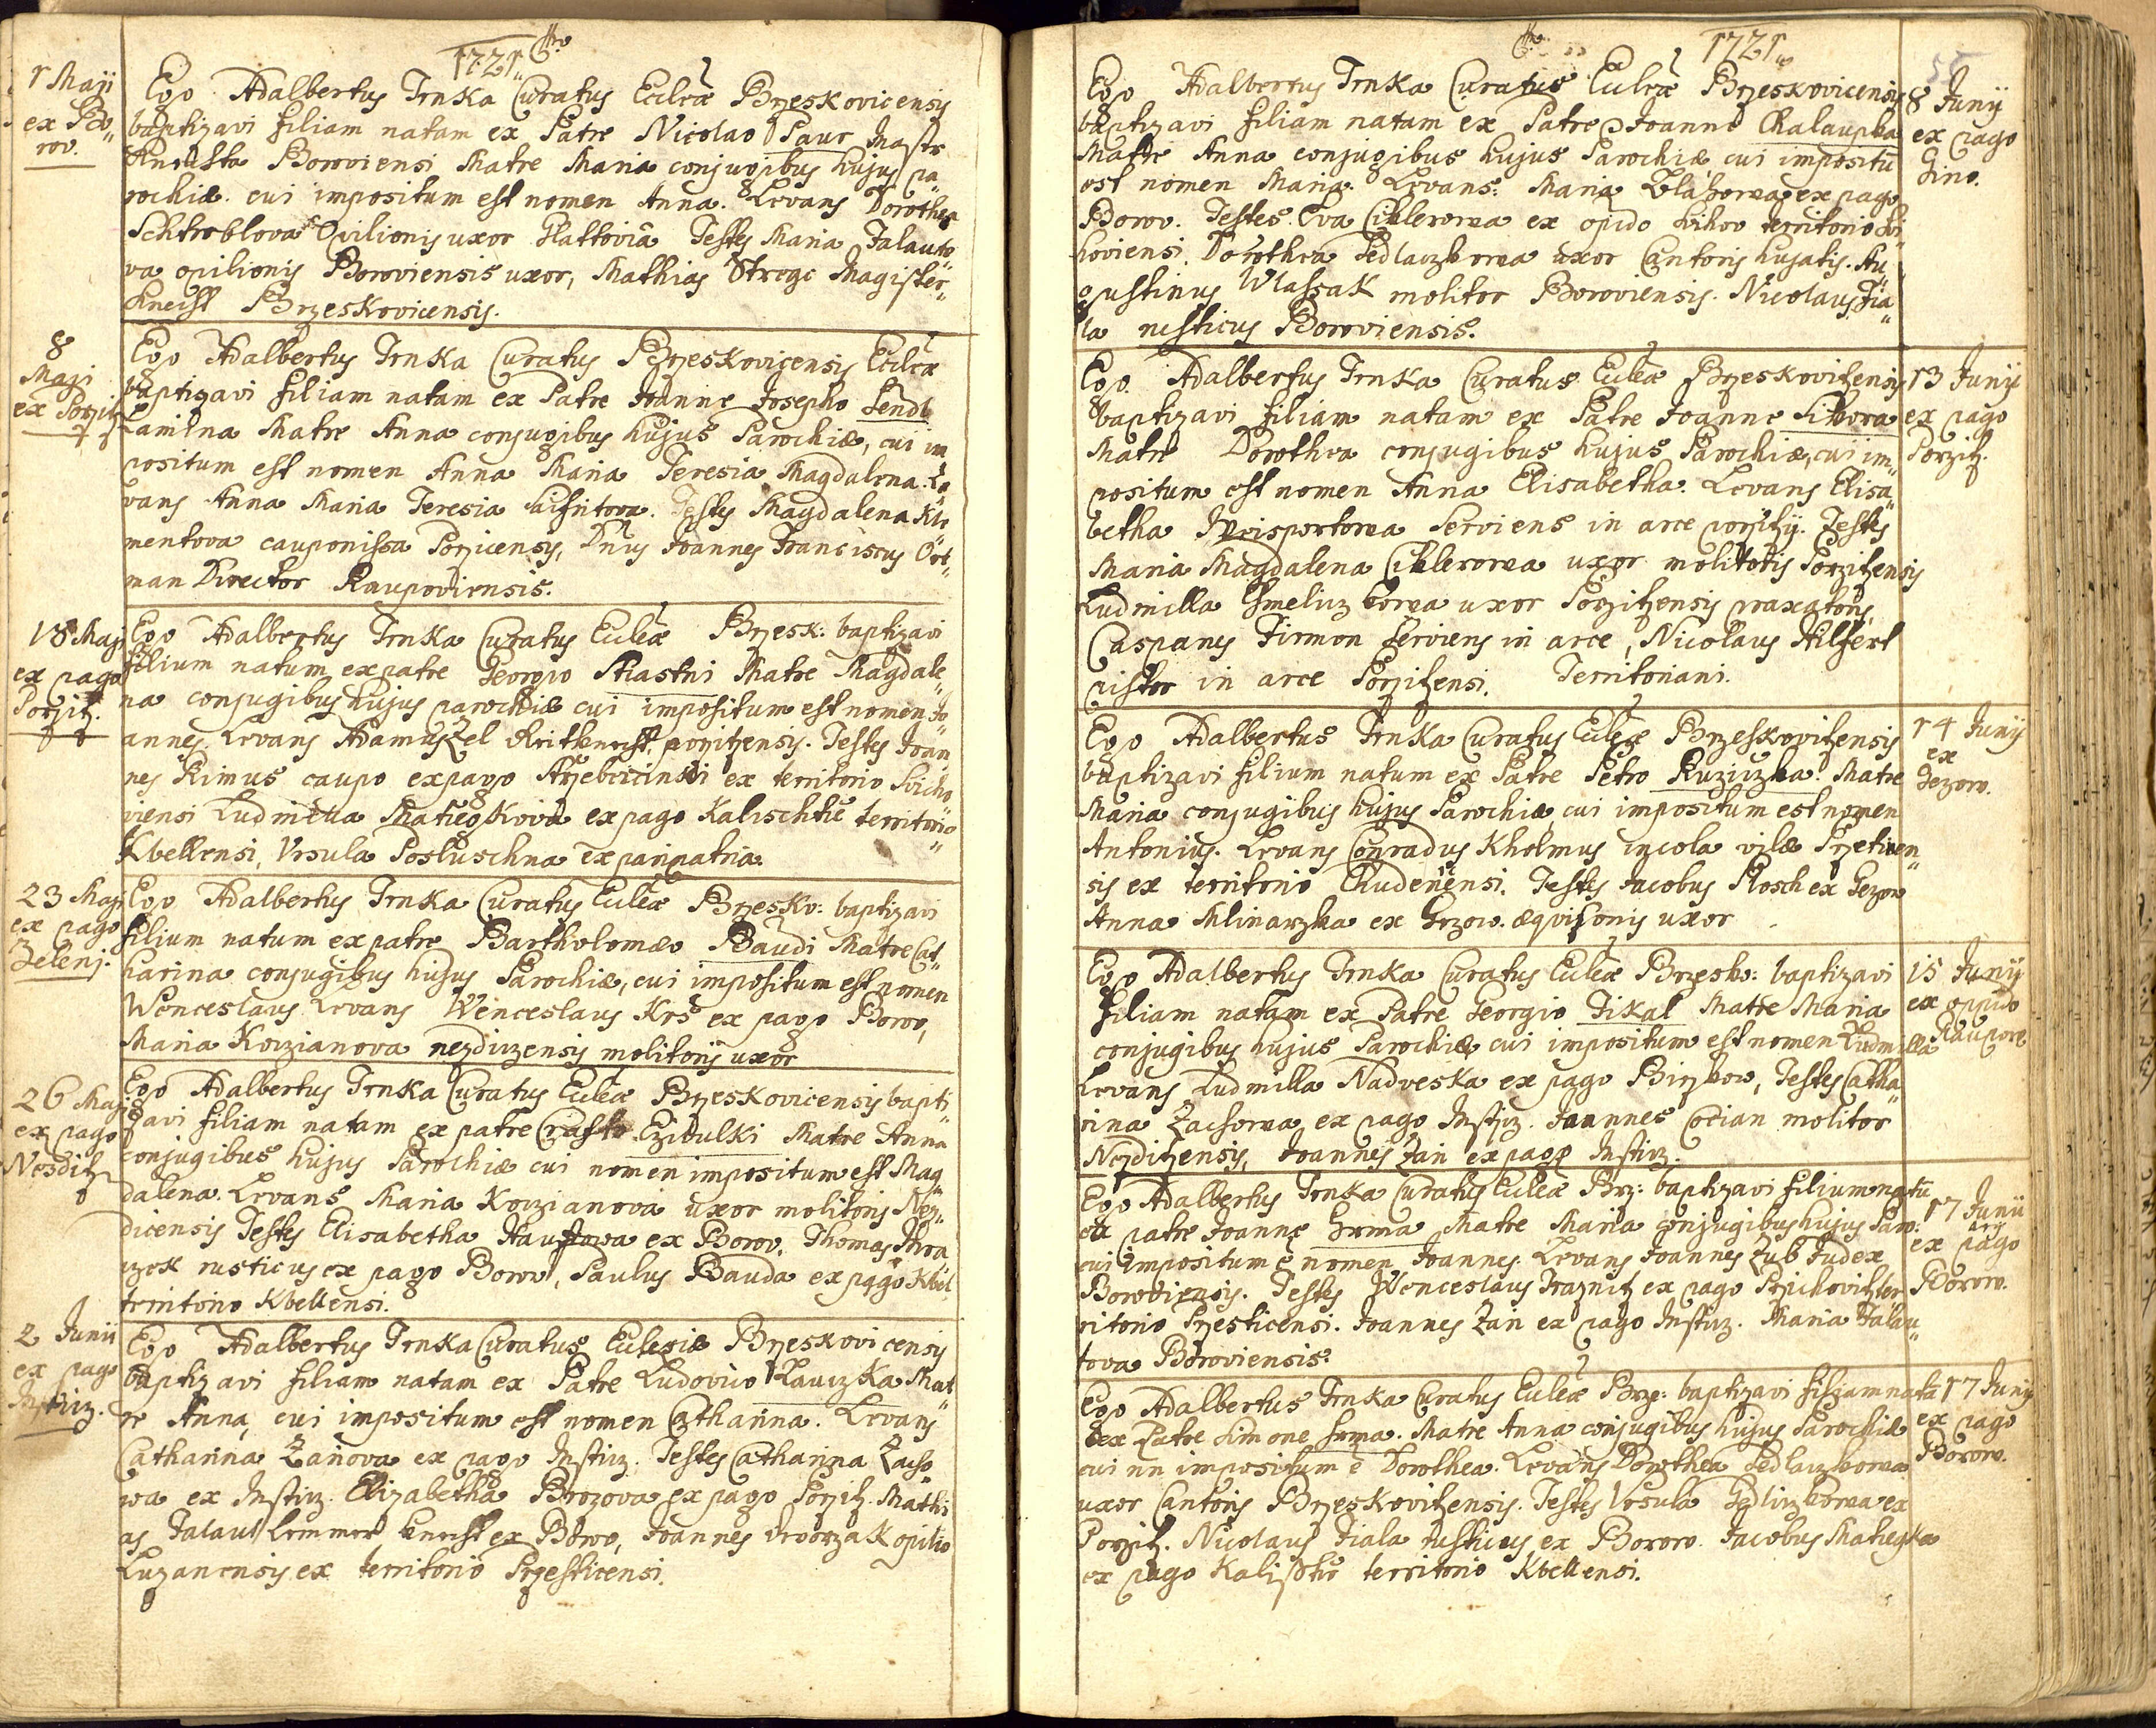 1721
1 Maji
ex Bo„
rov.
Ego Adalbertus Trnka Curatus Eccleæ Brzeskovicensis
baptizavi filiam natam ex Patre Nicolao Paur
Boroviensi Matre Maria conjugibus hujus pa„
rochiæ. cui impositum est nomen Anna. Levans Dorothea
Schtroblova Opilionis uxor Testes Maria Falauto„
va opilionis Boroviensis uxor, Mathias Magister„
knecht Brzeskovicensis.
8
Maji
ex Porzitz
Ego Adalbertus Trnka Curatus Brzeskovicensis Eccleæ
baptizavi filiam natam ex Patre Joanne Josepho
Matre Anna conjugibus hujus Parochiæ, cui im
positum est nomen Anna Maria Teresia Magdalena. Le
vans Anna Maria Teresia Testes Magdalena Kle
mentova cauponissa Porzicensis, Dnus Joannes Franciscus Ort„
man Director Raupoviensis.
18 Maji
ex pago
Porzitz.
Ego Adalbertus Trnka Curatus Eccleæ Brzesk: baptizavi
filium natum ex patre Georgio Stiastni Matre Magdale„
na conjugibus hujus parochiæ cui impositum est nomen Jo„
annes. Levans Adamus porzitzensis. Testes Joan
nes Rimus caupo ex pago ex territorio
viensi Ludmilla Matiegkova ex pago Kalischtie territorio
Kbellensi, Vrsula Posluschna ex pari patria.
23 Maji
ex pago
Zelenj.
Ego Adalbertus Trnka Curatus Eccleæ Brzesko: baptizavi
filium natum ex patre Bartholomæo Baudi Matre Cat„
harina conjugibus hujus Parochiæ, cui impositum est nomen
Wenceslaus Levans Wenceslaus Krs ex pago Borov,
Maria Korzianova nezdirzensis molitoris uxor
26 Maji
ex pago
Nesditz
Ego Adalbertus Trnka Curatus Eccleæ Brzeskovicensis bapti„
zavi filiam natam ex patre Matre Anna
conjugibus hujus Parochiæ cui nomen impositum est Mag„
dalena. Levans Maria Korzianova uxor molitoris Nez„
dicensis Testes Elisabetha ex Borov. Thomas
rusticus ex pago Borov, Paulus Bauda ex pago Kbel
territorio Kbellensi.
2 Junii
ex pago
Instirz.
Ego Adalbertus Trnka Curatus Eclesiæ Brzeskovicensis
baptizavi filiam natam ex Patre Ludovico Matr„
re Anna, cui impositum est nomen Catharina. Levans
Catharina Zanova ex pago Instirz. Testes Catharina Zacho„
wa ex Instirz. Elizabetha Brozova ex pago Porzitz. Mathi„
as Falaut knecht ex Borov, Joannes Dworzak opilio
Luzanensis ex territorio Przesticensi.
1721
8 Junij
ex pago
Gino.
Ego Adalbertus Trnka Curatus Eccleæ Brzeskovicensis
baptizavi filiam natam ex Patre Joanne Chalaupka
Matre Anna conjugibus hujus Parochiæ cui impositu
est nomen Maria. Levans: Maria ex pago
Borov. Testes. Eva Ciklerowa ex opido territorio
koviensi. Dorothea Sedlaczkowa uxor Cantoris hujatis. Au„
gustinus Wlassak molitor Boroviensis. Nicolaus Fia„
la rusticus Boroviensis.
13 Junij
ex pago
Porzitz.
Ego Adalbertus Trnka Curatus Eccleæ Brzeskovitzensis
baptizavi filiam natam ex Patre Joanne Sikora
Matre Dorothea conjugibus hujus Parochiæ, cui im„
positum est nomen Anna Elisabetha. Levans Elisa„
betha serviens in arce porzitz. Testes
Maria Magdalena Ciklerowa uxor molitoris Porzitzensis
Ludmilla Chmelirzkowa uxor Porzitzensis
Casparus Firmon serviens in arce, Nicolaus Hilgert
pistor in arce Porzitzensi. Territoriani.
14 Junij
ex
Gezow.
Ego Adalbertus Trnka Curatus Eccleæ Brzeskovitzensis
baptizavi filium natum ex Patre Petro Ruzirzka. Matre
Maria conjugibus hujus Parochiæ cui impositum est nomen
Antonius. Levans Conradus Kholmus incola vilæ
sis ex territorio Chudenensi. Testes Jacobus Plosch ex Gezow
Anna Mlinarzka ex Gezow. æqvisonis uxor
15 Junij
ex oppido
Raupov.
Ego Adalbertus Trnka Curatus Eccleæ Brzesko: baptizavi
filiam natam ex Patre Georgio Fikal Matre Maria
conjugibus hujus Parochiæ cui impositum est nomen Ludmilla
Levans Ludmilla Nadveska ex pago Birzkow, Testes Catha„
rina Zachowa ex pago Instirz. Joannes Corian molitor
Nezditzensis, Joannes Zan ex pago Instirz.
17 Junii
ex pago
Borow.
Ego Adalbertus Trnka Curatus Eccleæ Brz: baptizavi filium natū
ex patre Joanne Hrma Matre Maria conjugibus hujus Paro:
cui impositum ē nomen Joannes. Levans Joannes Zub Judex
Boroviensis. Testes Wenceslaus Traznitz ex pago Przichovitz ter„
ritorio Przesticensi. Joannes Zan ex pago Instirz. Maria Falau„
tova Boroviensis.
17 Junij
ex pago
Borow.
Ego Adalbertus Trnka Curatus Eccleæ Brze: baptizavi filiam natā
ex Patre Simone Hrma. Matre Anna conjugibus hujus Parochiæ
cui nn impositum ē Dorothea. Levans Dorothea Sedlarzkowa
uxor Cantoris Brzeskovitzensis. Testes Vrsula ex
Porzitz. Nicolaus Fiala rusticus ex Borow. Jacobus Matiegka
ex pago Kalisstie territorio Kbellensi.